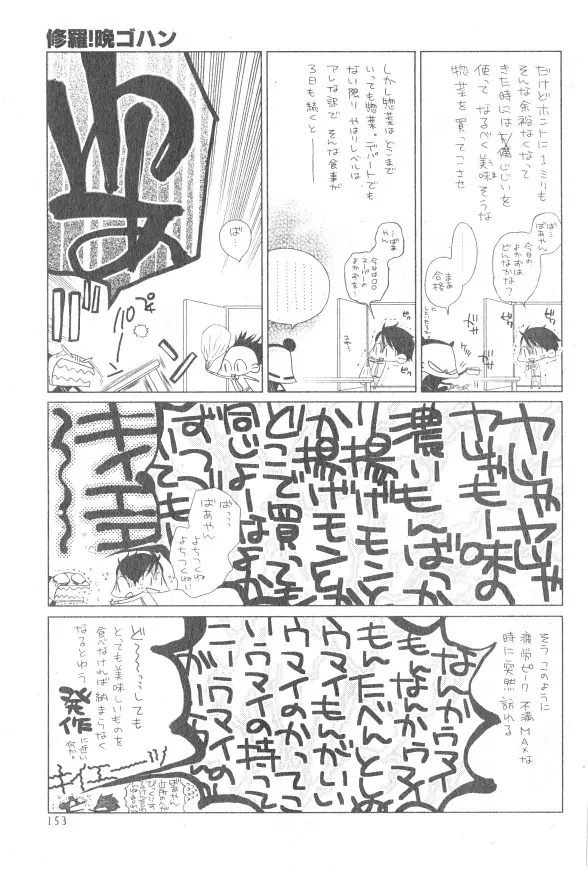 修羅!晩ゴハン
だけどホントに1ミリも
そんな余裕なくなって
きた時には
使って なるべく美味そうな
惣菜を買ってこさせ
ばあやん
今日の
よかずは
どんなかな?
まぁ
合格
しかし惣菜はどこまで
いっても惣菜。デパートでも
ない限り やはりレベルは
アレな訳で そんな食事が
3日も続くと――
…ばぁ
やん
今日は○○
スーパーの
よかずを…
ば…
プチ
いやじゃ
ヤじゃヤじゃ
ヤじゃもー味の
濃いもんばっか
か揚げモンとか
どこで買っても
同じよーなよか
ずばっかで
もー
キィエェ
ばっ…
ばあやん
よちつくね
よちつくねい
そう このように
疲労ピーク 不満MAXな
時に突然 訪れる
なんかウマイ
もんなんかウマイ
もんたべんとし
ウマイもんがいい
いウマイのかってこ
ニーウマイの持って
ど〜〜……しても
とっても美味しいものを
食べなければ納まらなく
なるとゆう
発作
に近い
何か。
ばあやん
153